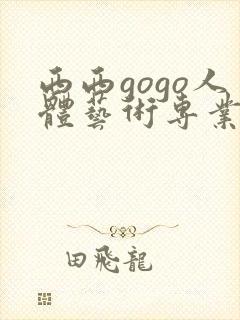 西西gogo人
體藝術專業
田飛龍